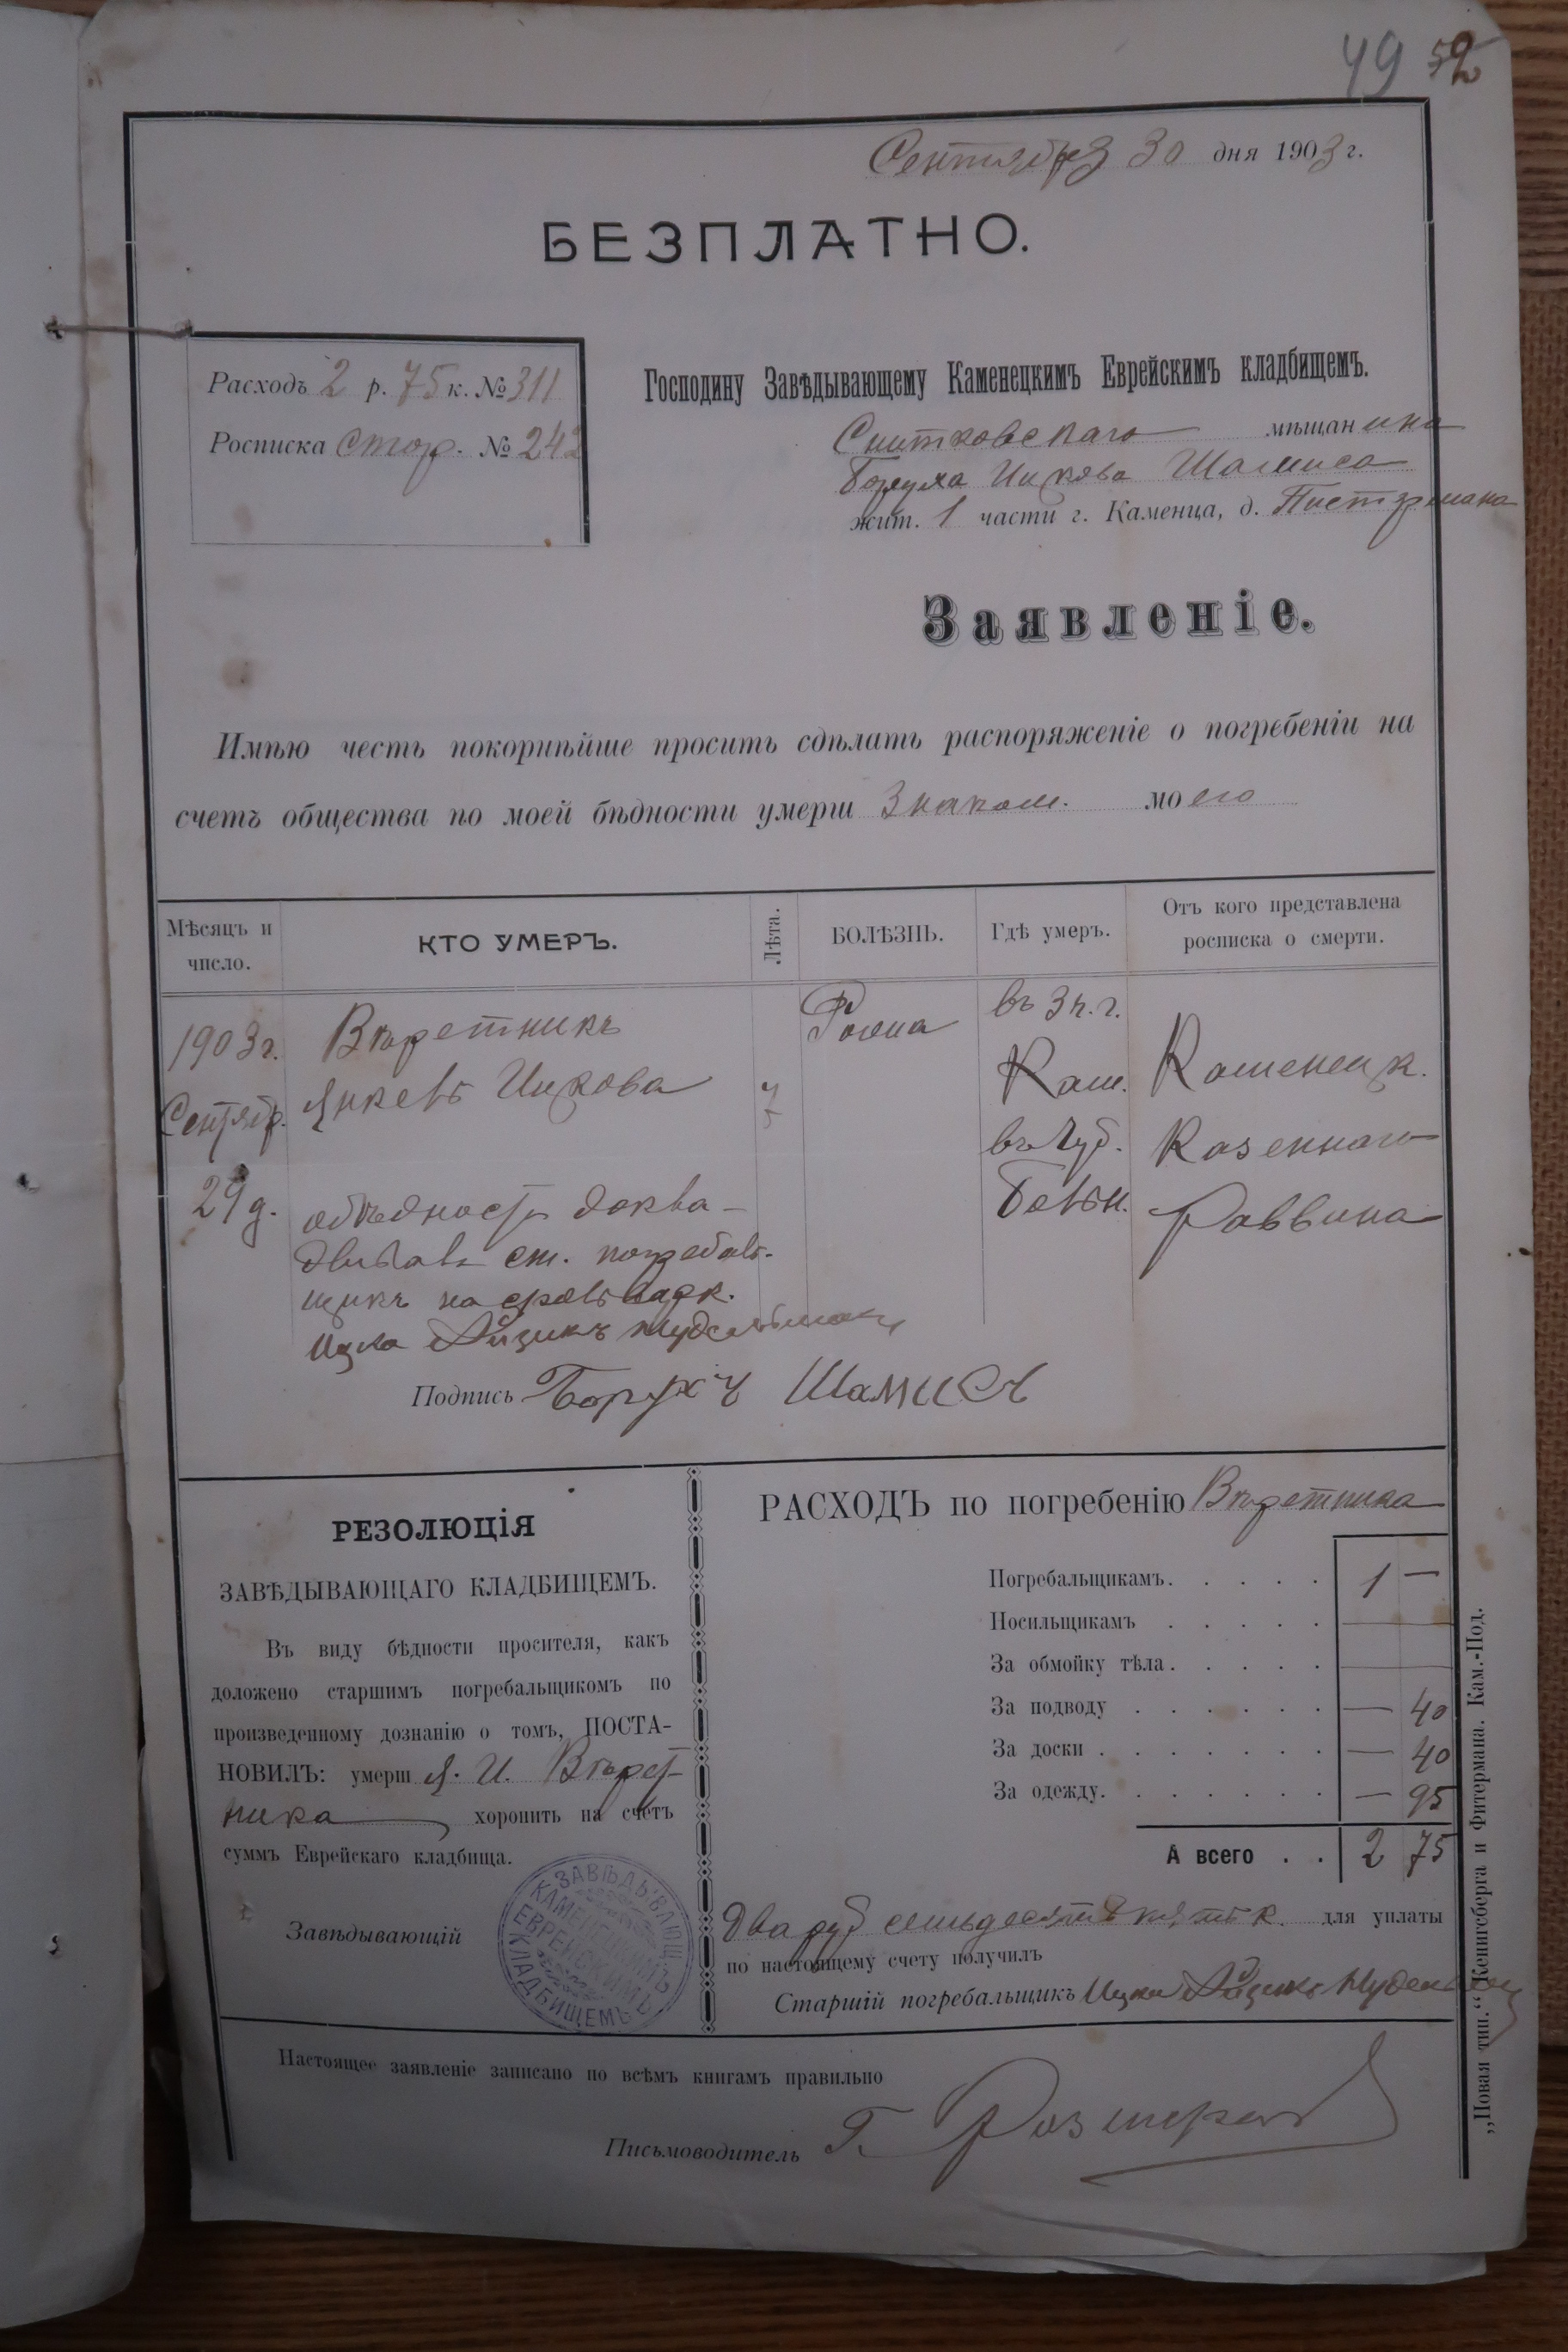 49 52
Сентября 30 дня 1903 г.
БЕЗПЛАТНО.
Расходъ 2 р. 75 к. № 311
Росписка стор. № 242
Господину Завѣдывающему Каменецкимъ Еврейскимъ кладбищемъ.
Снитковскаго мѣщанина
Боруха Ицкова Шамиса
жит. 1 части г. Каменца, д. Пистермана
Заявленіе.
Имѣю честь покорнѣйше просить сдѣлать распоряженіе о погребеніи на
счетъ общества по моей бѣдности умерш знаком. моего
Мѣсяцъ и число.
КТО УМЕРЪ.
Лѣта.
БОЛѢЗНЬ.
Гдѣ умеръ.
Отъ кого представлена росписка о смерти.
1903 г.
Сентяб.
29 д.
Вторетникъ
Янкевъ Ицкова
Рожа
въ 3 ч. г.
Кам.
въ Еуб.
Каменецк.
Казеннаго
Раввина
о бѣдности дозна-
ст. погребаль-
щикъ на
Ицко Айзикъ
Подпись Борухъ Шамисъ
РЕЗОЛЮЦІЯ
ЗАВѢДЫВАЮЩАГО КЛАДБИЩЕМЪ.
Въ виду бѣдности просителя, какъ
доложено старшимъ погребальщикомъ по
произведенному дознанію о томъ, ПОСТА-
НОВИЛЪ: умерш Я. И. Вторет-
ника хоронить на счетъ
суммъ Еврейскаго кладбища.
Завѣдывающій
ЗАВѢДЫВАЮЩ. КАМЕНЕЦКИМЪ ЕВРЕЙСКИМЪ КЛАДБИЩЕМЪ
РАСХОДЪ по погребенію Вторетника
Погребальщикамъ. . . . . 1 —
Носильщикамъ . . . . .
За обмойку тѣла . . . . .
За подводу . . . . . . — 40
За доски . . . . . . . — 40
За одежду. . . . . . . — 95
А всего . . 2 75
Два руб семьдесятъ пять к. для уплаты
по настоящему счету получилъ
Старшій погребальщикъ Ицко Айзикъ
Настоящее заявленіе записано по всѣмъ книгамъ правильно
Письмоводитель Г.
„Новая тип.“ Кенигсберга и Фитермана. Кам.-Под.